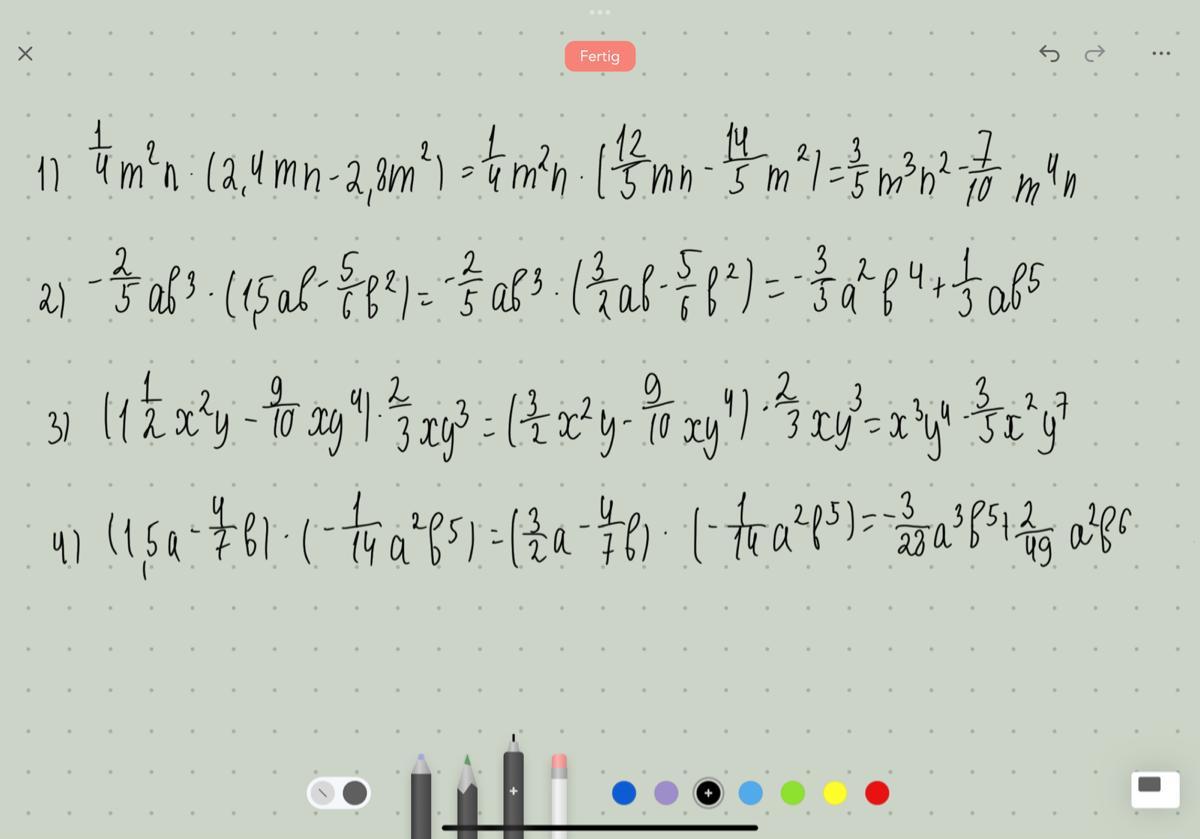 Fertig
1) 1/4 m²n · (2,4mn - 2,8m²) = 1/4 m²n · (12/5 mn - 14/5 m²) = 3/5 m³n² - 7/10 m⁴n
2) -2/5 ab³ · (1,5ab - 5/6 b²) = -2/5 ab³ · (3/2 ab - 5/6 b²) = -3/3 a²b⁴ + 1/3 ab⁵
3) (1 1/2 x²y - 9/10 xy⁴) · 2/3 xy³ = (3/2 x²y - 9/10 xy⁴) · 2/3 xy³ = x³y⁴ - 3/5 x²y⁷
4) (1,5a - 4/7 b) · (-1/14 a²b⁵) = (3/2 a - 4/7 b) · (-1/14 a²b⁵) = -3/28 a³b⁵ + 2/49 a²b⁶